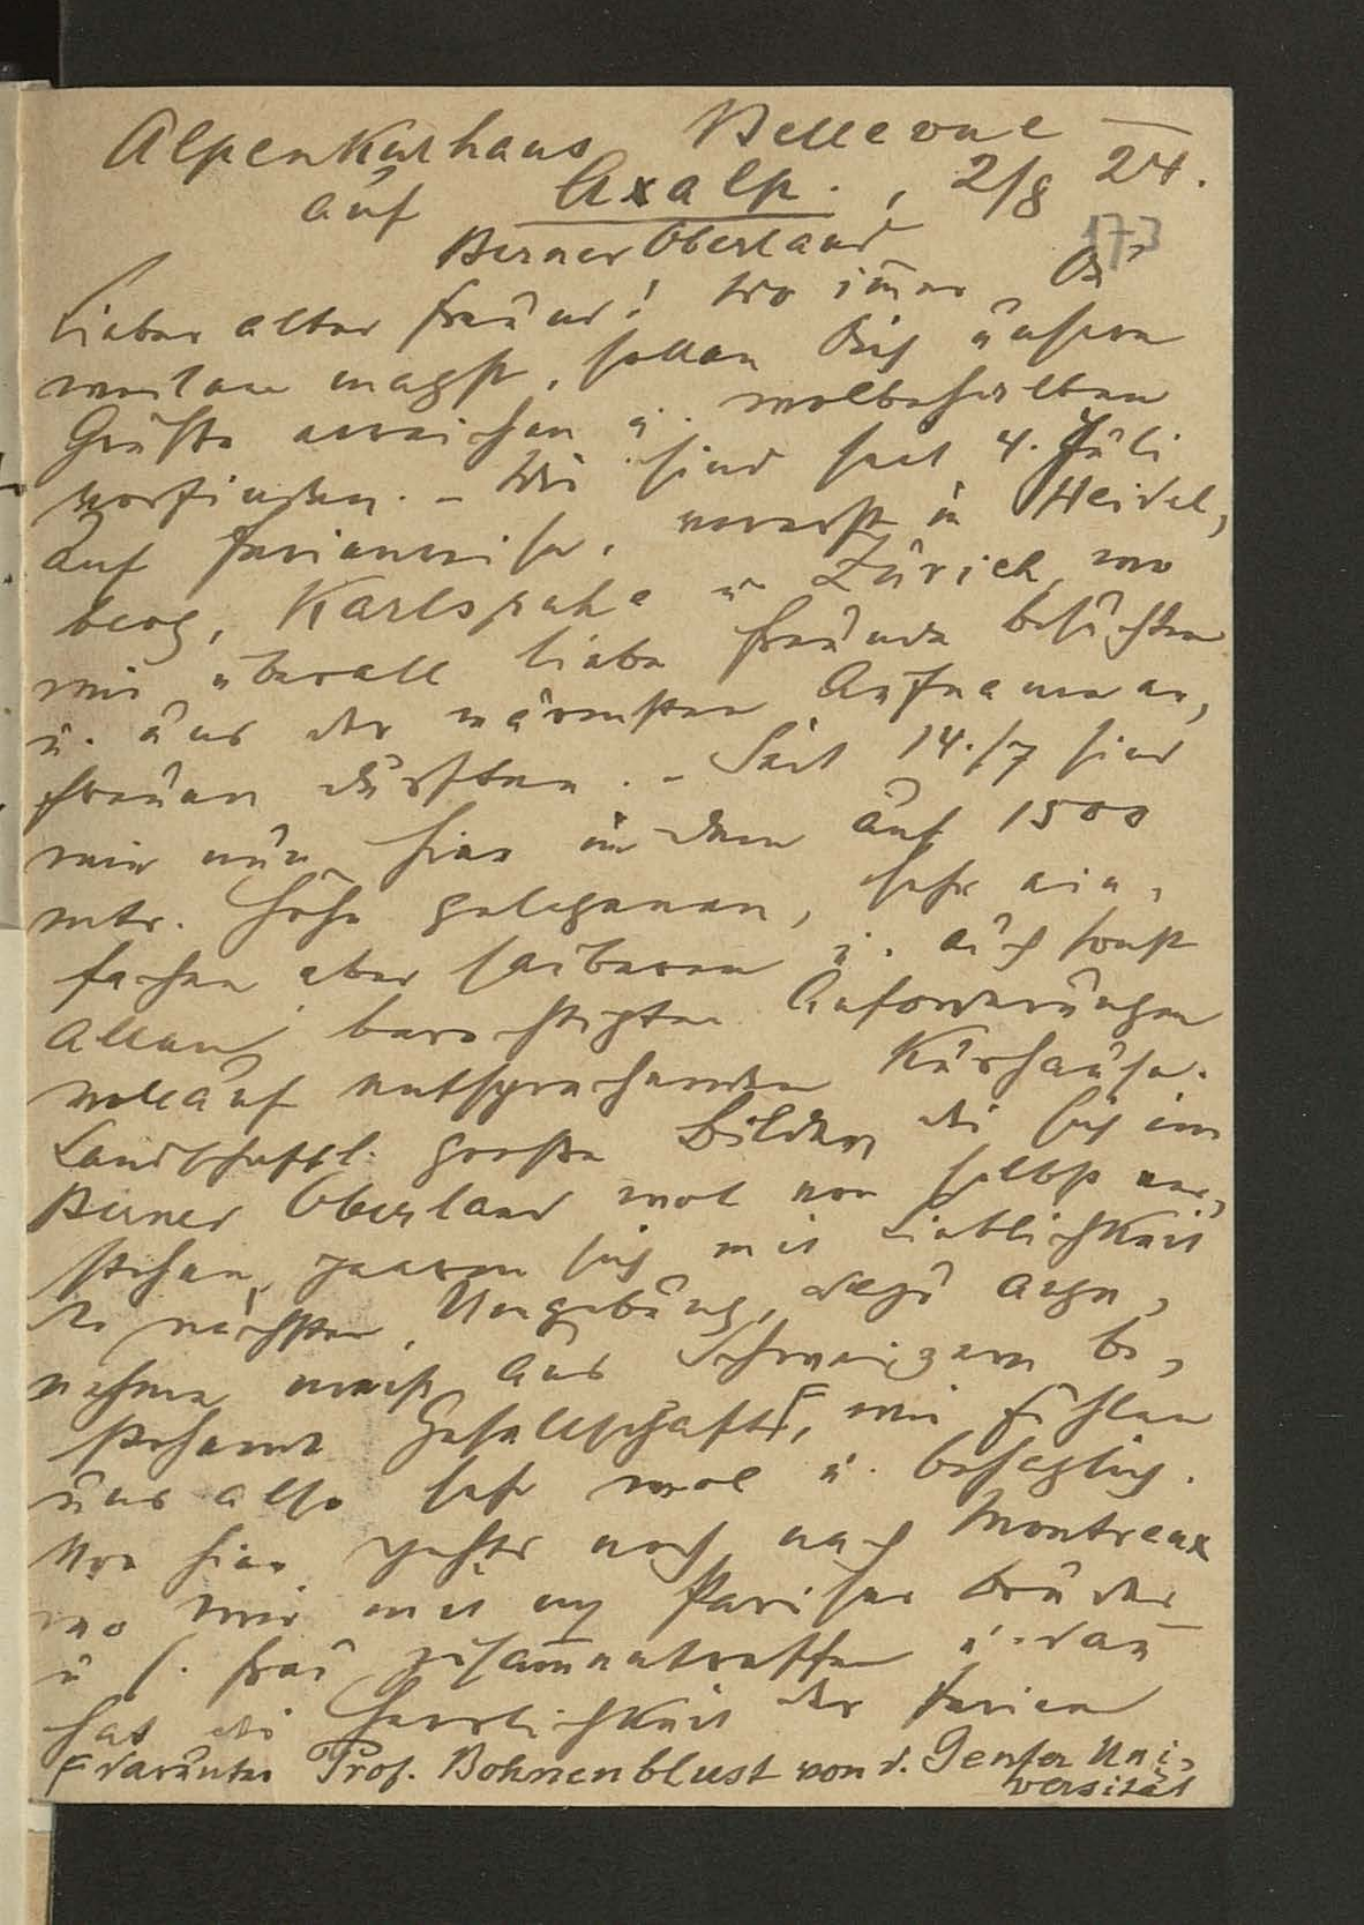 Alpenkurhaus Bellevue —
auf Axalp., 2/8 24.
Berner Oberland
173
Lieber alter Freund! Wo immer Du
weilen magst, sollen Dich unsere
Grüße erreichen u. wolbehalten
vorfinden. – Wir sind seit 4. Juli
auf Ferienreise, vorerst in Heidel-
berg, Karlsruhe u Zürich, wo
wir überall liebe Freunde besuchten
u. uns der wärmsten Aufnamen er-
freuen durften. – Seit 14./7 sind
wir nun hier in dem auf 1500
mtr. Höhe gelegenen, sehr ein-
fachen aber sauberen u. auch sonst
allen berechtigten Anforderungen
vollauf entsprechenden Kurhause.
Landschaftl. große Bilder, die sich im
Berner Oberland wol von selbst ver-
stehen, paaren sich mit Lieblichkeit
der nächsten Umgebung, dazu ange-
nehme meist aus Schweizern be-
stehende Gesellschaft F, wir fühlen
uns also sehr wol u. behaglich.
Von hier gehts noch nach Montreux
wo wir mit m Pariser Bruder
u s. Frau zusammentreffen u. dann
hat die Herrlichkeit der Ferien
F darunter Prof. Bohnenblust von d. Genfer Uni-
versität